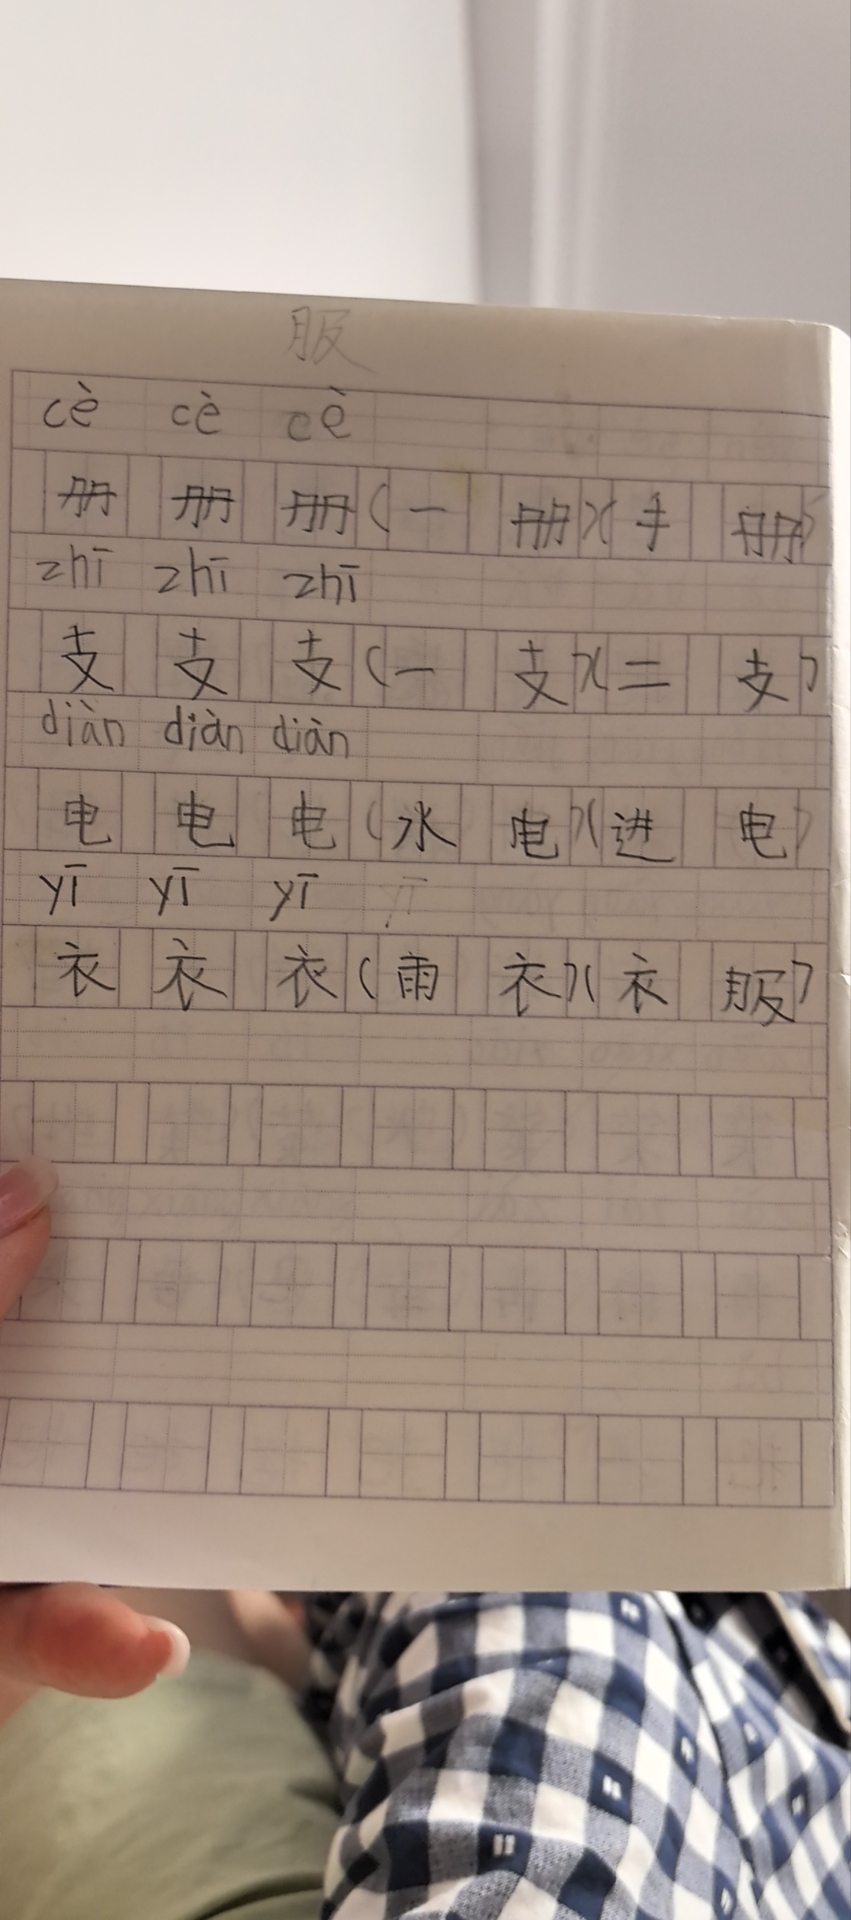 服
cè cè cè
册 册 册 (一 册)(手 册)
zhī zhī zhī
支 支 支 (一 支)(二 支)
diàn diàn diàn
电 电 电 (水 电)(进 电)
yī yī yī yī
衣 衣 衣 (雨 衣)(衣 服)